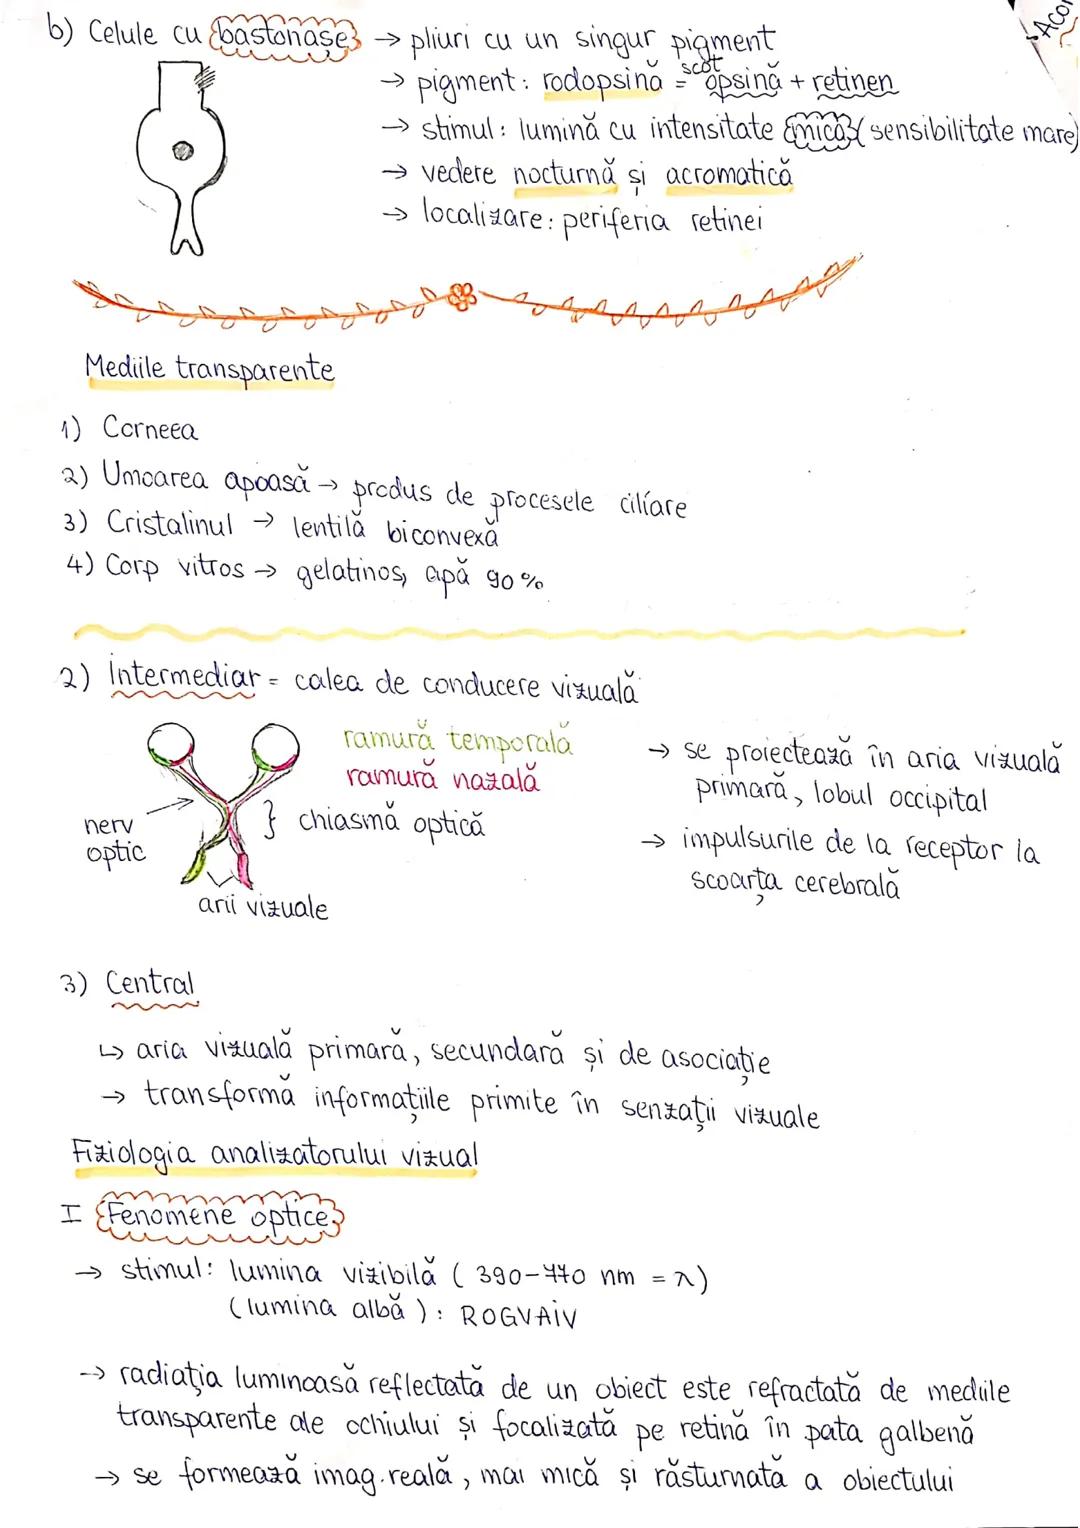 Aco
b) Celule cu bastonașe → pliuri cu un singur pigment
→ pigment: rodopsină = scot opsină + retinen
→ stimul: lumină cu intensitate mică (sensibilitate mare)
→ vedere nocturnă și acromatică
→ localizare: periferia retinei
Mediile transparente
1) Corneea
2) Umoarea apoasă → produs de procesele ciliare
3) Cristalinul → lentilă biconvexă
4) Corp vitros → gelatinos, apă 90%
2) Intermediar = calea de conducere vizuală
ramură temporală
ramură nazală
nerv optic
} chiasmă optică
arii vizuale
→ se proiectează în aria vizuală
primară, lobul occipital
→ impulsurile de la receptor la
scoarța cerebrală
3) Central
↳ aria vizuală primară, secundară și de asociație
→ transformă informațiile primite în senzații vizuale
Fiziologia analizatorului vizual
I Fenomene optice
→ stimul: lumina vizibilă (390-770 nm = λ)
(lumina albă): ROGVAIV
→ radiația luminoasă reflectată de un obiect este refractată de mediile
transparente ale ochiului și focalizată pe retină în pata galbenă
→ se formează imag. reală, mai mică și răsturnată a obiectului